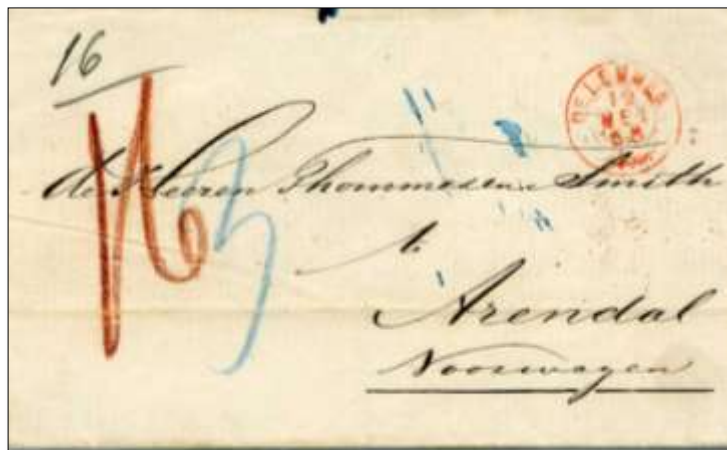 16
DE LEMMER
12
MEI
68
16
3
de Heeren Thommesen Smith
te
Arendal
Noorwegen